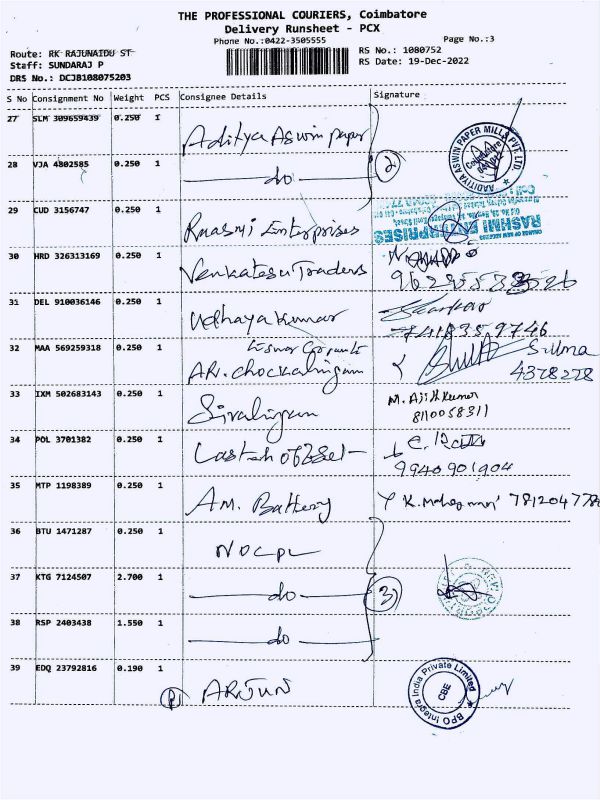 THE PROFESSIONAL COURIERS, Coimbatore
Delivery Runsheet - PCX
Phone No.:0422-3505555
Page No.:3
Route: RK RAJUNAIDU ST
RS No.: 1080752
Staff: SUNDARAJ P
RS Date: 19-Dec-2022
DRS No.: DCJB108075203
S No Consignment No Weight PCS Consignee Details Signature
27 SLM 309659439 0.250 1 Aditya Aswin paper
2
AADITYA ASWIN PAPER MILLS PVT LTD
Coimbatore
28 VJA 4802585 0.250 1 do
29 CUD 3156747 0.250 1 Rhasmi Enterprises
RASHMI ENTERPRISES
30 HRD 326313169 0.250 1 Venkatesu Traders
31 DEL 910036146 0.250 1 Udhaya Kumar
7418359746
32 MAA 569259318 0.250 1 AR. chockalingam
4378278
33 IXM 502683143 0.250 1 Sivalingam
M. Ajith Kumar
8110058311
34 POL 3701382 0.250 1
9940901904
35 MTP 1198389 0.250 1 Am. Battery
36 BTU 1471287 0.250 1 NOCPL
37 KTG 7124507 2.700 1 do
3
38 RSP 2403438 1.550 1 do
39 EDQ 23792816 0.190 1 ARJUN
BPO Integra India Private Limited
CBE